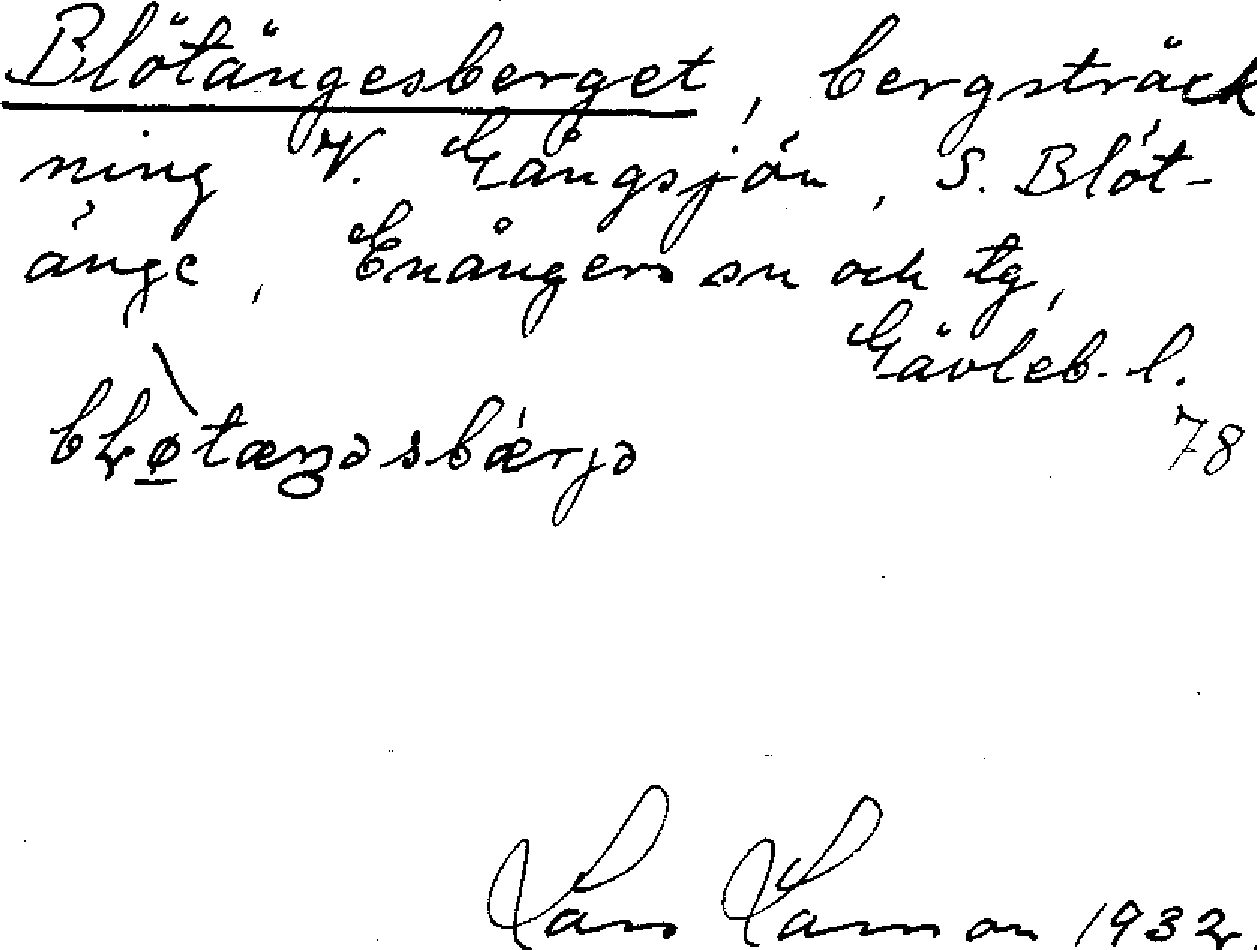 Blötängesberget, bergsträck
ning V. Gångsjön, S. Blöt-
änge, Enångers sn och tg,
Gävleb. l.
78
Lars Larsson 1932